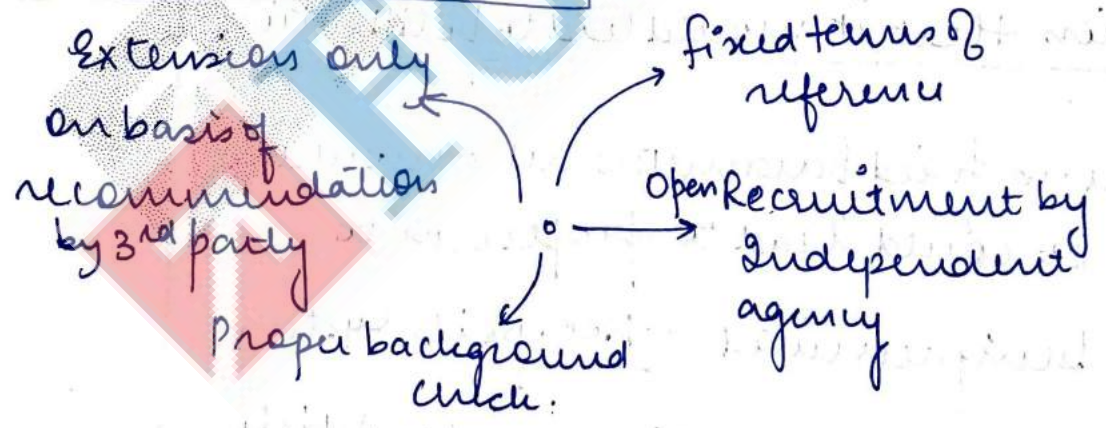 Extensions only
on basis of
recommendations
by 3rd party
fixed terms of
reference
Open Recruitment by
Independent
agency
Proper background
check.